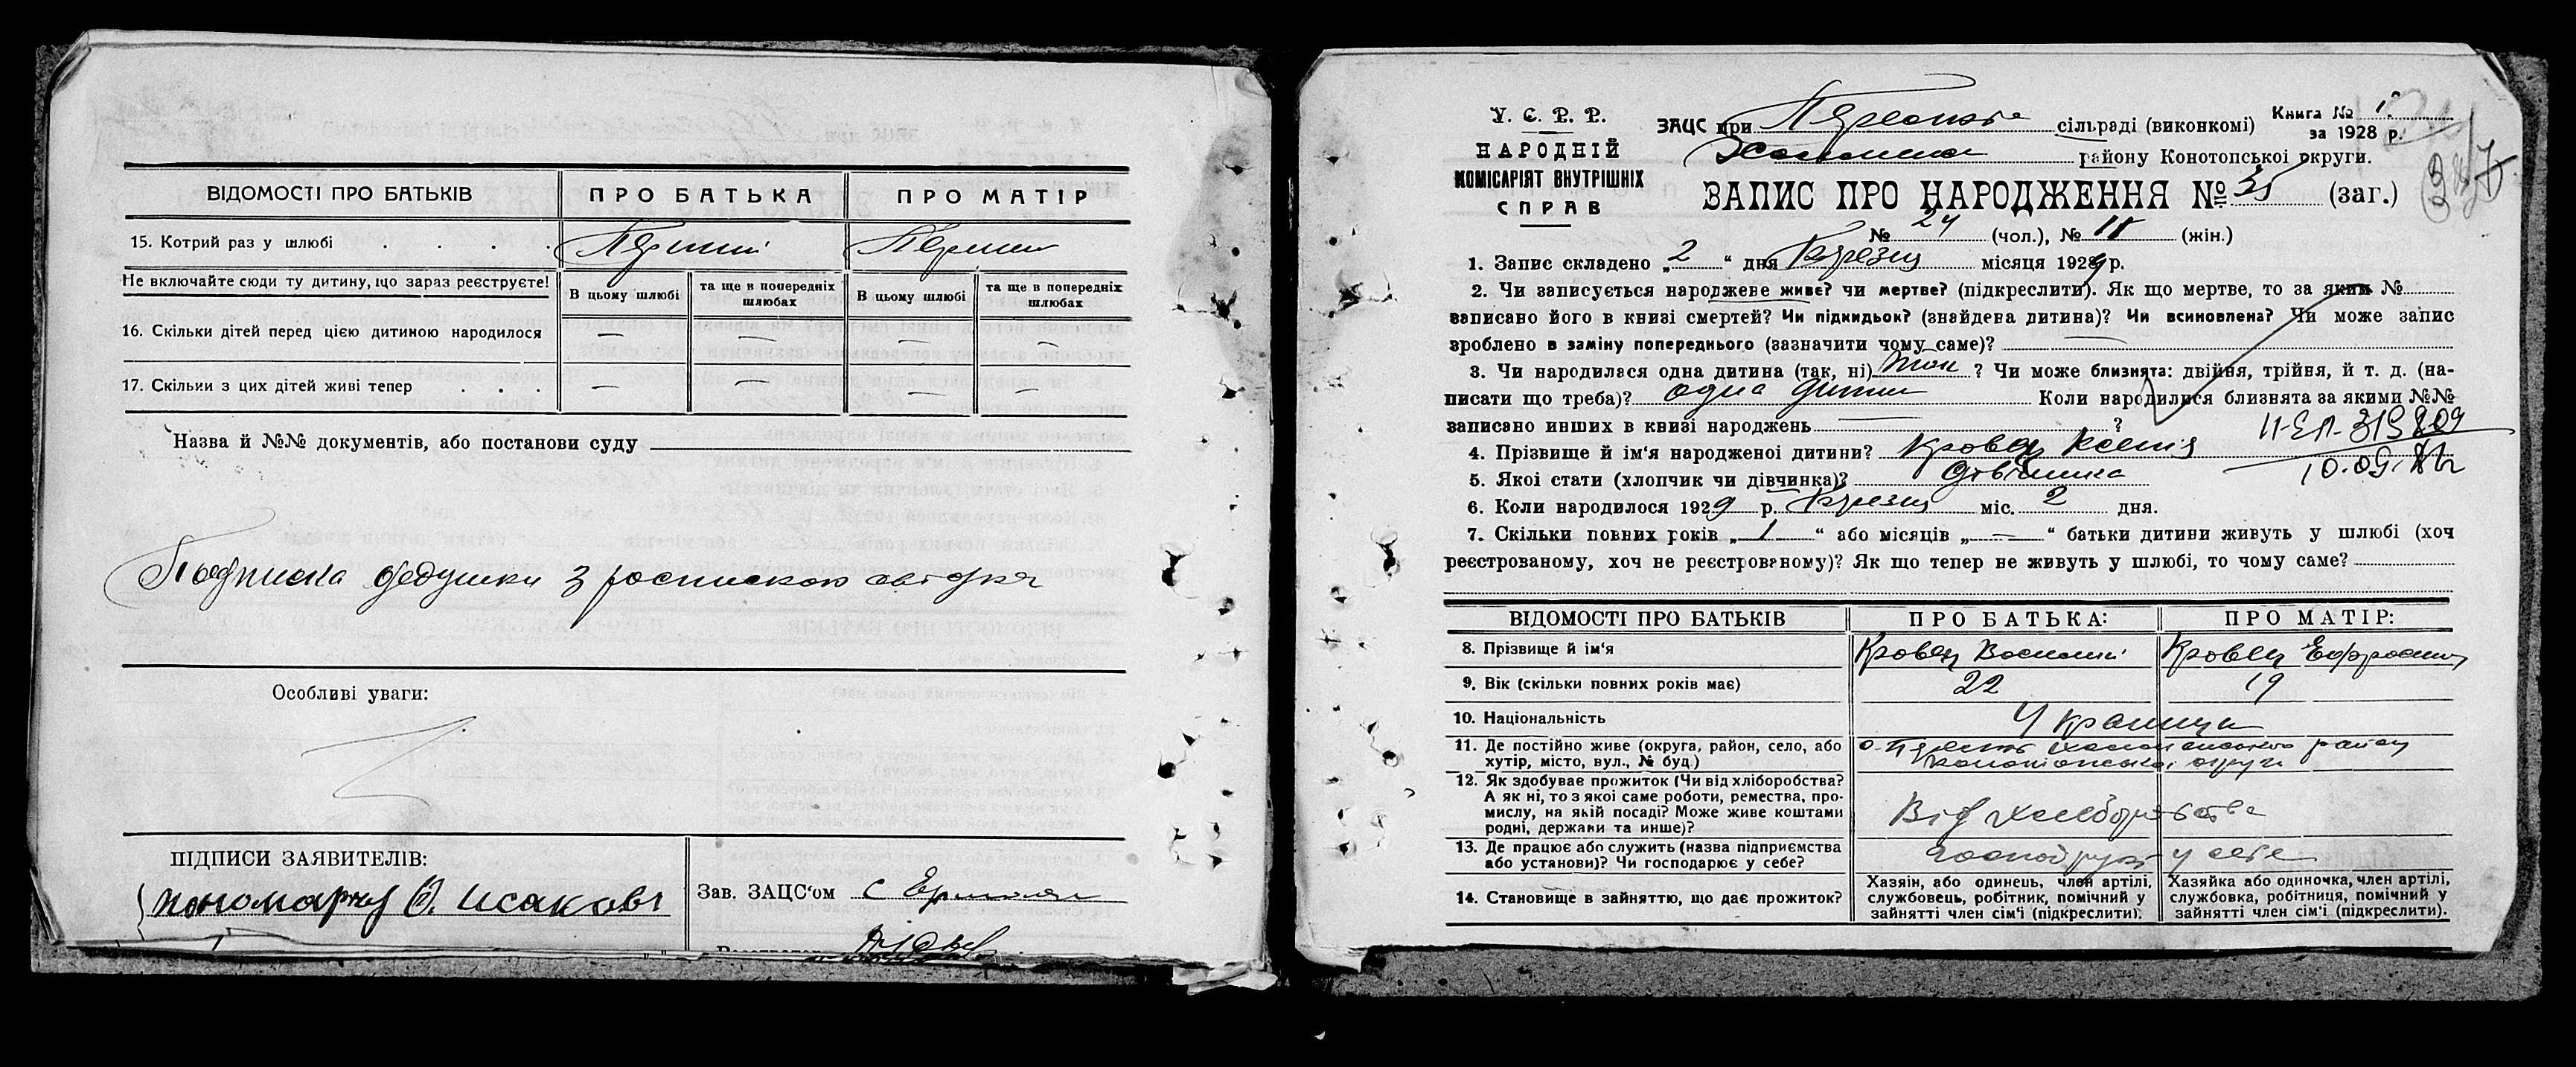 ВІДОМОСТІ ПРО БАТЬКІВ
ПРО БАТЬКА
ПРО МАТІР
15. Котрий раз у шлюбі . . . .
Перший
Не включайте сюди ту дитину, що зараз реєструєте!
В цьому шлюбі
та ще в попередніх шлюбах
В цьому шлюбі
та ще в попередніх шлюбах
16. Скільки дітей перед цією дитиною народилося
— — — —
17. Скільки з цих дітей живі тепер . . .
— — — —
Назва й №№ документів, або постанови суду
Подписка дедушки з роспискою
Особливі уваги:
ПІДПИСИ ЗАЯВИТЕЛІВ:
Зав. ЗАЦС'ом
У. С. Р. Р.
НАРОДНІЙ
КОМІСАРІЯТ ВНУТРІШНІХ
СПРАВ
ЗАЦС при сільраді (виконкомі)
Книга № 1
за 1928 р.
району Конотопської округи.
ЗАПИС ПРО НАРОДЖЕННЯ № 35 (заг.)
№ 24 (чол.), № 11 (жін.)
1. Запис складено „ 2 “ дня Березня місяця 1929 р.
2. Чи записується народжене живе? чи мертве? (підкреслити). Як що мертве, то за яким №
записано його в книзі смертей? Чи підкидьок? (знайдена дитина)? Чи всиновлена? Чи може запис
зроблено в заміну попереднього (зазначити чому саме)? —
3. Чи народилася одна дитина (так, ні) так ? Чи може близнята: двійня, трійня, й т. д. (на-
писати що треба)? одна дитина Коли народилися близнята за якими №№
записано инших в книзі народжень — ?
4. Прізвище й ім'я народженої дитини? Кровец Ксенія
5. Якої стати (хлопчик чи дівчинка)? дівчинка
6. Коли народилося 1929 р. Березня міс. 2 дня.
7. Скільки повних років „ 1 “ або місяців „ — “ батьки дитини живуть у шлюбі (хоч
реєстрованому, хоч не реєстрованому)? Як що тепер не живуть у шлюбі, то чому саме?
ВІДОМОСТІ ПРО БАТЬКІВ
ПРО БАТЬКА:
ПРО МАТІР:
8. Прізвище й ім'я
Кровец
Кровец
9. Вік (скільки повних років має)
22
19
10. Національність
Українці
11. Де постійно живе (округа, район, село, або
хутір, місто, вул., № буд.)
району
Конотопської округи
12. Як здобуває прожиток (Чи від хліборобства?
А як ні, то з якої саме роботи, ремества, про-
мислу, на якій посаді? Може живе коштами
родні, держави та инше)?
Від хліборобства
13. Де працює або служить (назва підприємства
або установи)? Чи господарює у себе?
у себе
14. Становище в зайняттю, що дає прожиток?
Хазяін, або одинець, член артілі,
службовець, робітник, помічний у
зайнятті член сім'ї (підкреслити).
Хазяйка або одиночка, член артілі,
службовка, робітниця, помічний у
зайнятті член сім'ї (підкреслити).